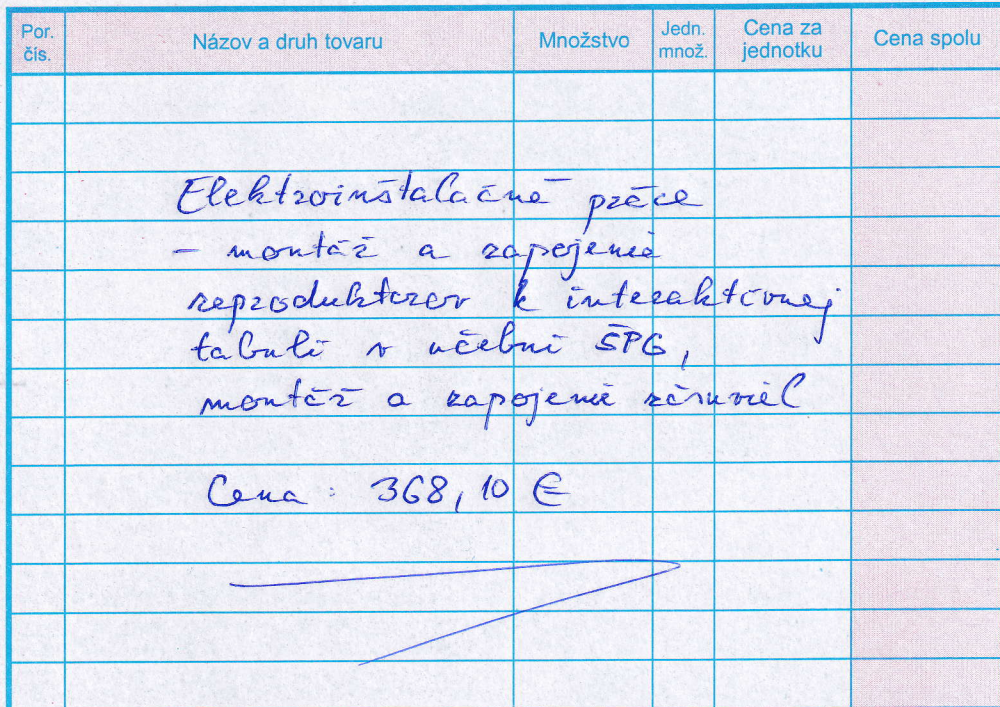 Por. čís.
Názov a druh tovaru
Množstvo
Jedn. množ.
Cena za jednotku
Cena spolu
Elektroinštalačné práce
- montáž a zapojenie
reproduktorov k interaktívnej
tabuli v učebni ŠPG,
montáž a zapojenie zásuviel
Cena : 368,10 €